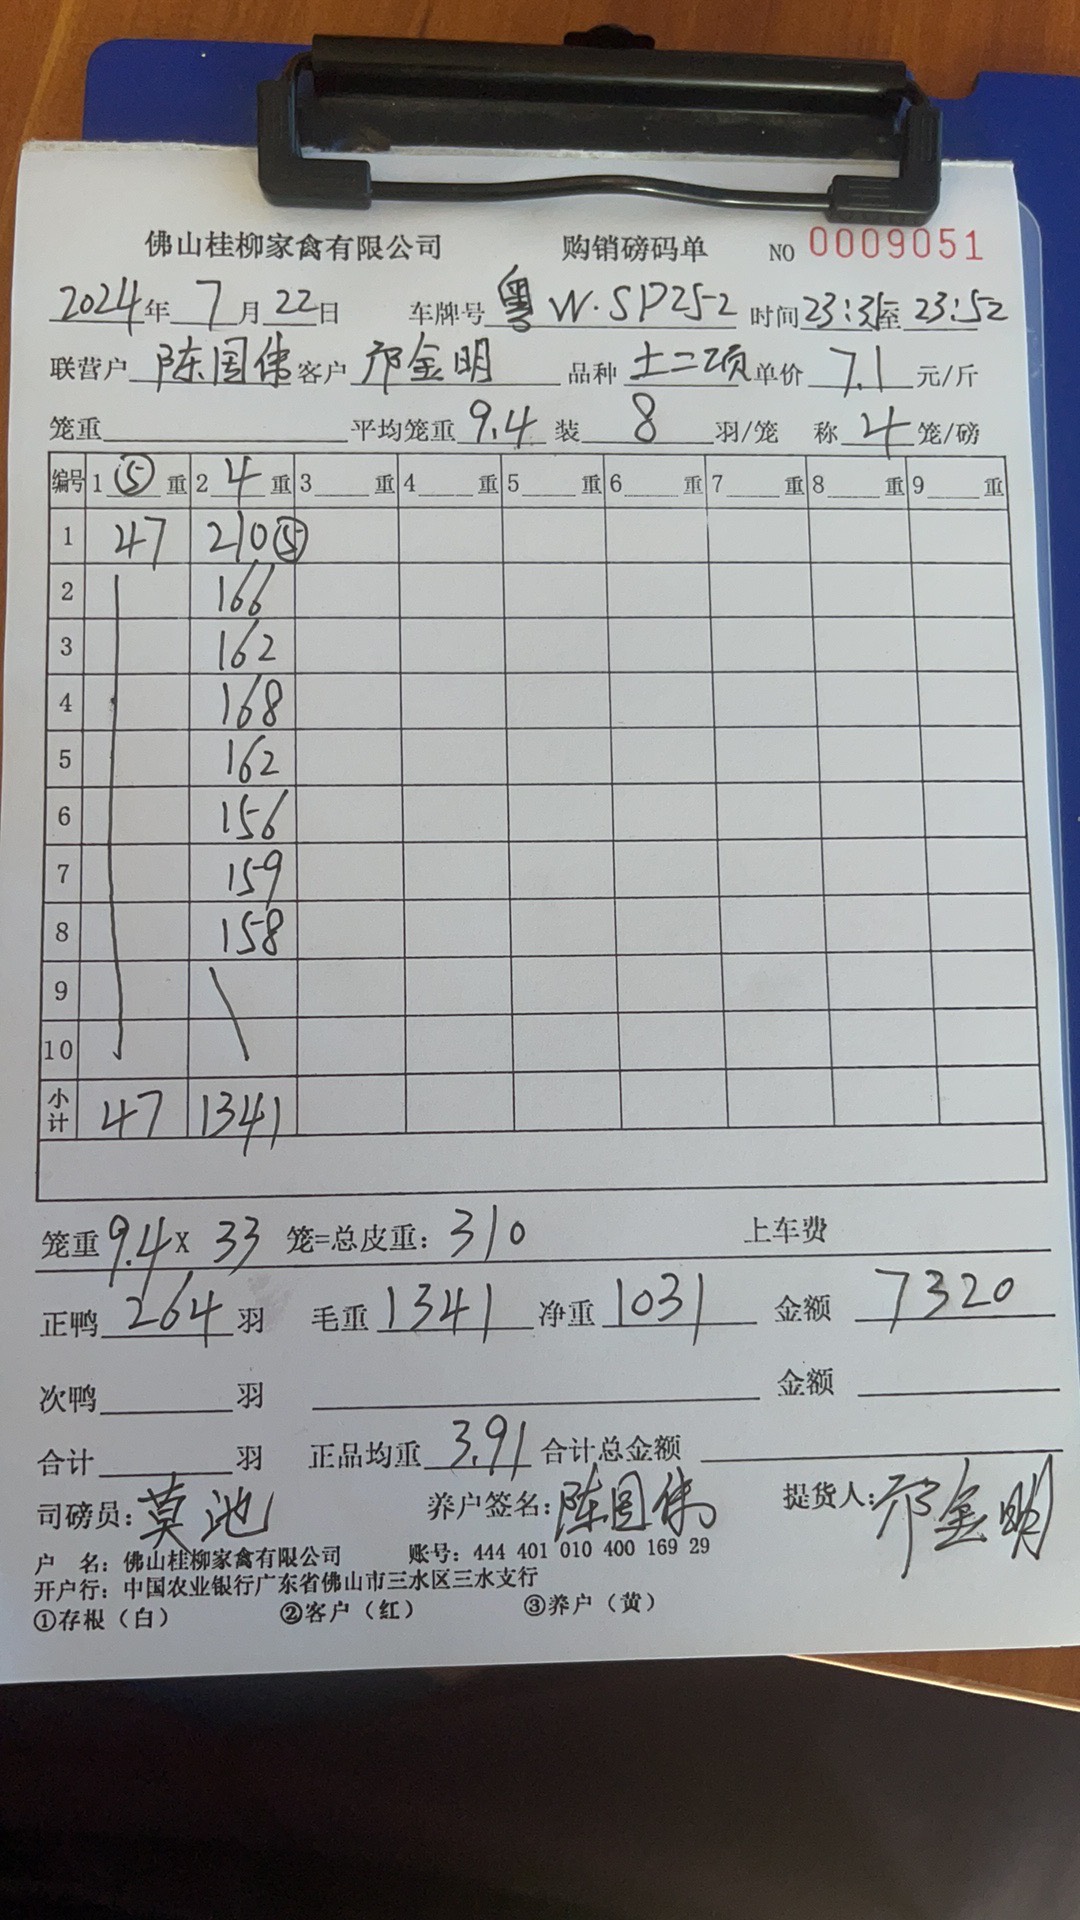 佛山桂柳家禽有限公司 购销磅码单 NO 0009051
2024年7月22日 车牌号 粤W·SP252 时间23:35至23:52
联营户 陈国伟 客户 邝金明 品种 土二项 单价 7.1 元/斤
笼重 平均笼重 9.4 装 8 羽/笼 称 4 笼/磅
编号 1 ⑤ 重 2 4 重 3 重 4 重 5 重 6 重 7 重 8 重 9 重
1 47 210⑤
2 166
3 162
4 168
5 162
6 156
7 159
8 158
9
10
小计 47 1341
笼重9.4 x 33 笼=总皮重: 310 上车费
正鸭 264 羽 毛重 1341 净重 1031 金额 7320
次鸭 羽 金额
合计 羽 正品均重 3.91 合计总金额
司磅员: 莫池 养户签名: 陈国伟 提货人: 邝金明
户 名: 佛山桂柳家禽有限公司 账号: 444 401 010 400 169 29
开户行: 中国农业银行广东省佛山市三水区三水支行
①存根（白） ②客户（红） ③养户（黄）